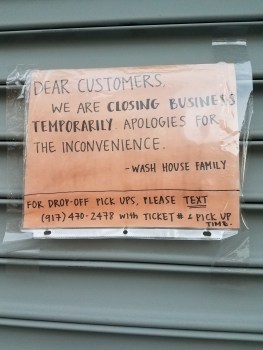 DEAR CUSTOMERS,
WE ARE CLOSING BUSINESS
TEMPORARILY. APOLOGIES FOR
THE INCONVENIENCE.
- WASH HOUSE FAMILY
FOR DROP-OFF PICK UPS, PLEASE TEXT
(917) 470-2478 WITH TICKET # & PICK UP
TIME.